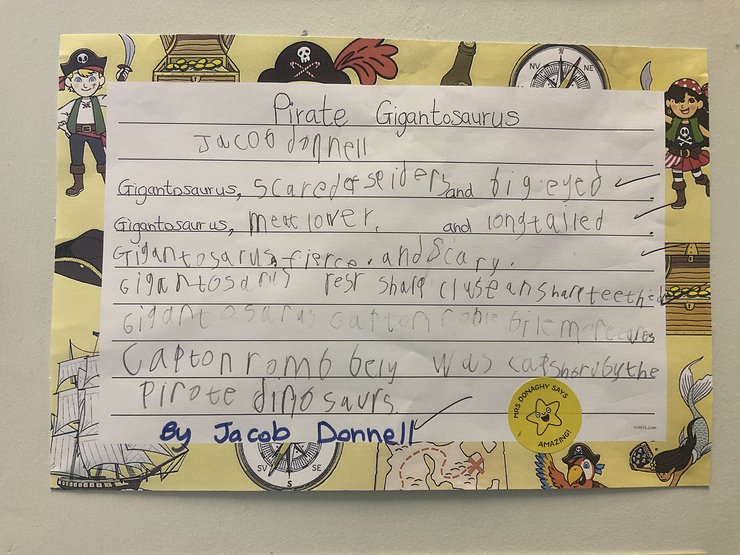 N
NV
NE
Pirate Gigantosaurus
Jacob donnell
Gigantosaurus, scared of speiders and big eyed
Gigantosaurus, meat lover. and long tailed
Gigantosarus, fierce. and Scary.
Gigantosarus sharp an sharp teeth
Gigantosarus capton
Capton romb bely was by the
pirote dinosaurs.
By Jacob Donnell
MRS DONAGHY SAYS
AMAZING!
SV
S
SE